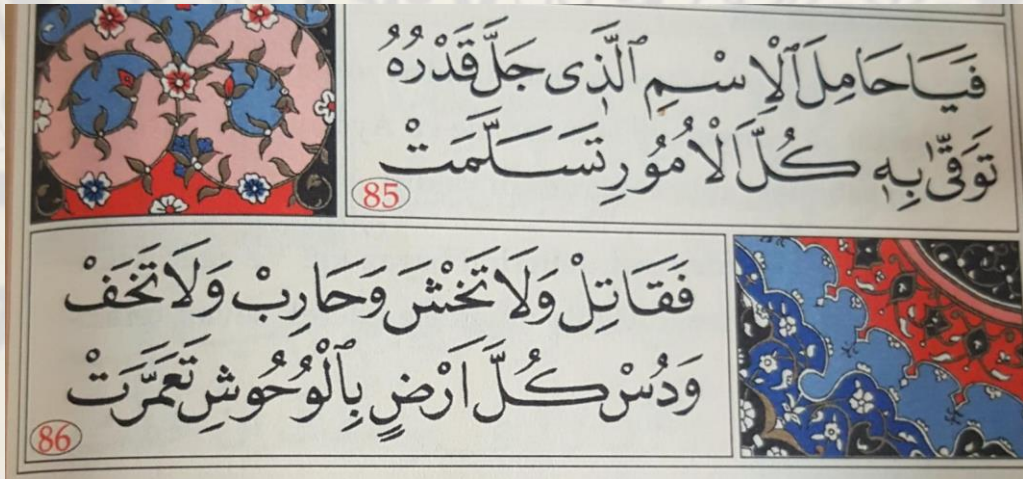 فَيَا حَامِلَ ٱلْاِسْمِ ٱلَّذِى جَلَّ قَدْرُهُ
تَوَقّٰى بِهٖ كُلَّ الْاُمُورِ تَسَلَّمَتْ
85
فَقَاتِلْ وَلَا تَخْشَ وَحَارِبْ وَلَا تَخَفْ
وَدُسْ كُلَّ اَرْضٍ بِٱلْوُحُوشِ تَعَمَّرَتْ
86